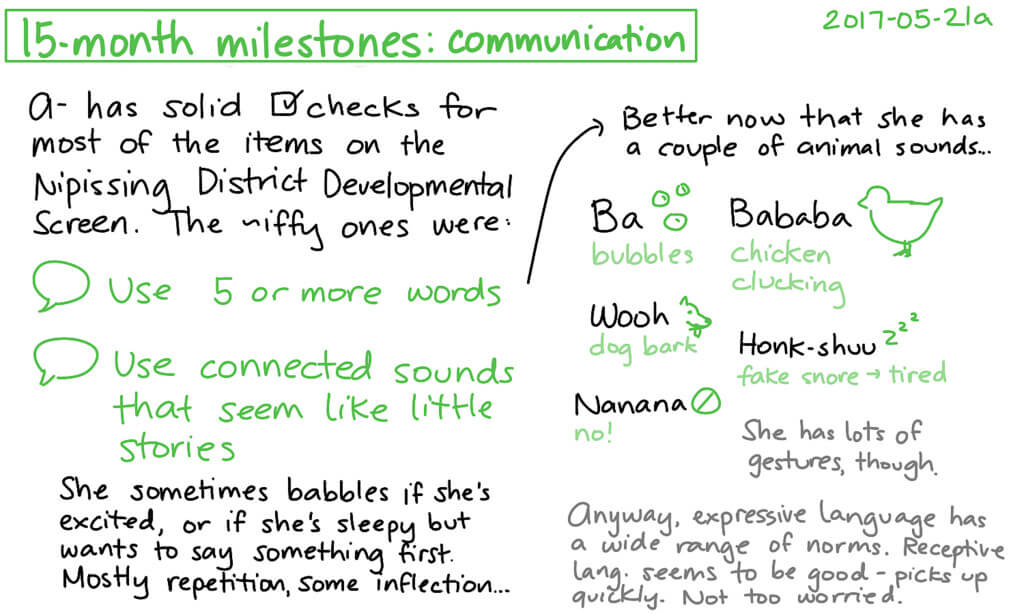 15-month milestones: communication
2017-05-21a
A- has solid ☑ checks for
most of the items on the
Nipissing District Developmental
Screen. The niffy ones were:
Use 5 or more words
Use connected sounds
that seem like little
stories
She sometimes babbles if she's
excited, or if she's sleepy but
wants to say something first.
Mostly repetition, some inflection...
Better now that she has
a couple of animal sounds...
Ba
bubbles
Bababa
chicken
clucking
Wooh
dog bark
Honk-shuu zzz
fake snore → tired
Nanana
no!
She has lots of
gestures, though.
Anyway, expressive language has
a wide range of norms. Receptive
lang. seems to be good - picks up
quickly. Not too worried.